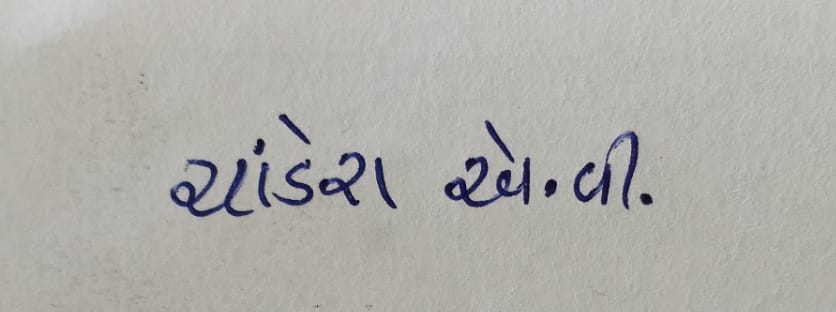 ચાંડેરા એ.વી.